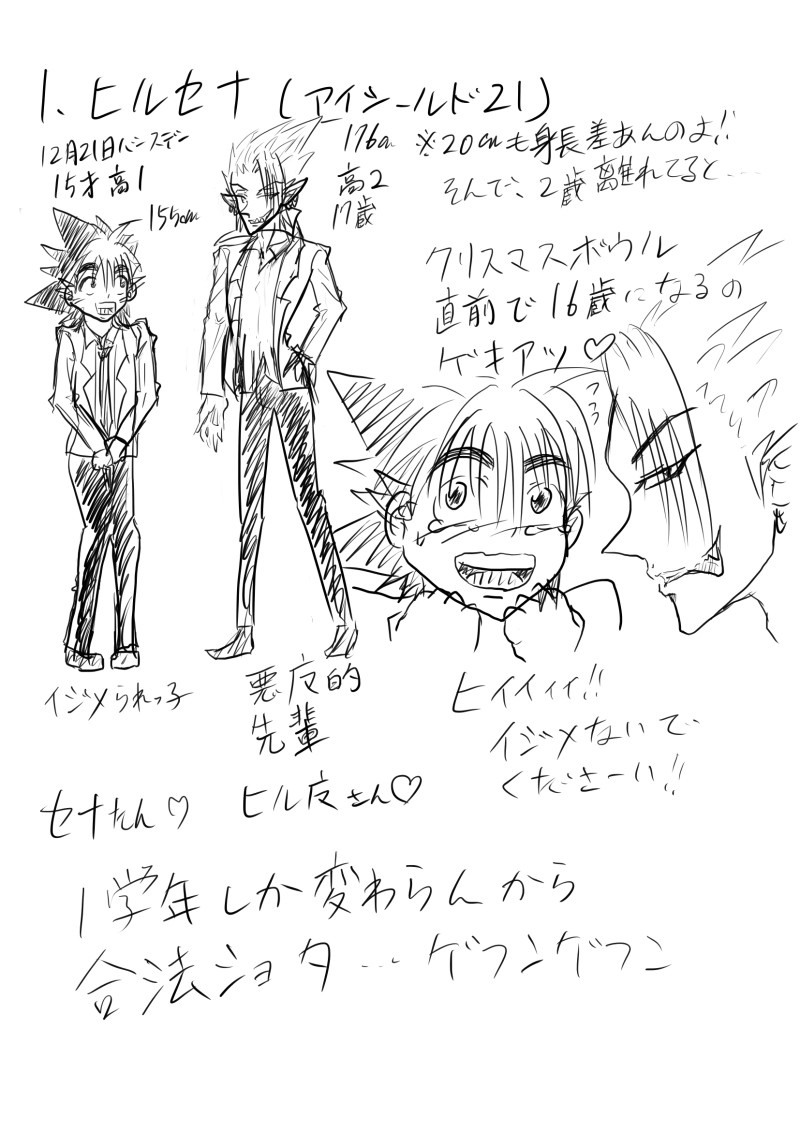 1、ヒルセナ(アイシールド21)
12月21日バースデン
15才高1
155cm
176cm
高2
17歳
※20cmも身長差あんのよ!!
そんで、2歳離れてると…
クリスマスボウル
直前で16歳になるの
ゲキアツ♡
イジメられっ子
悪魔的
先輩
ヒイイィィ!!
イジメないで
くださーい!!
セナたん♡
ヒル魔さん♡
1学年しか変わらんから
合法ショタ…ゲフンゲフン